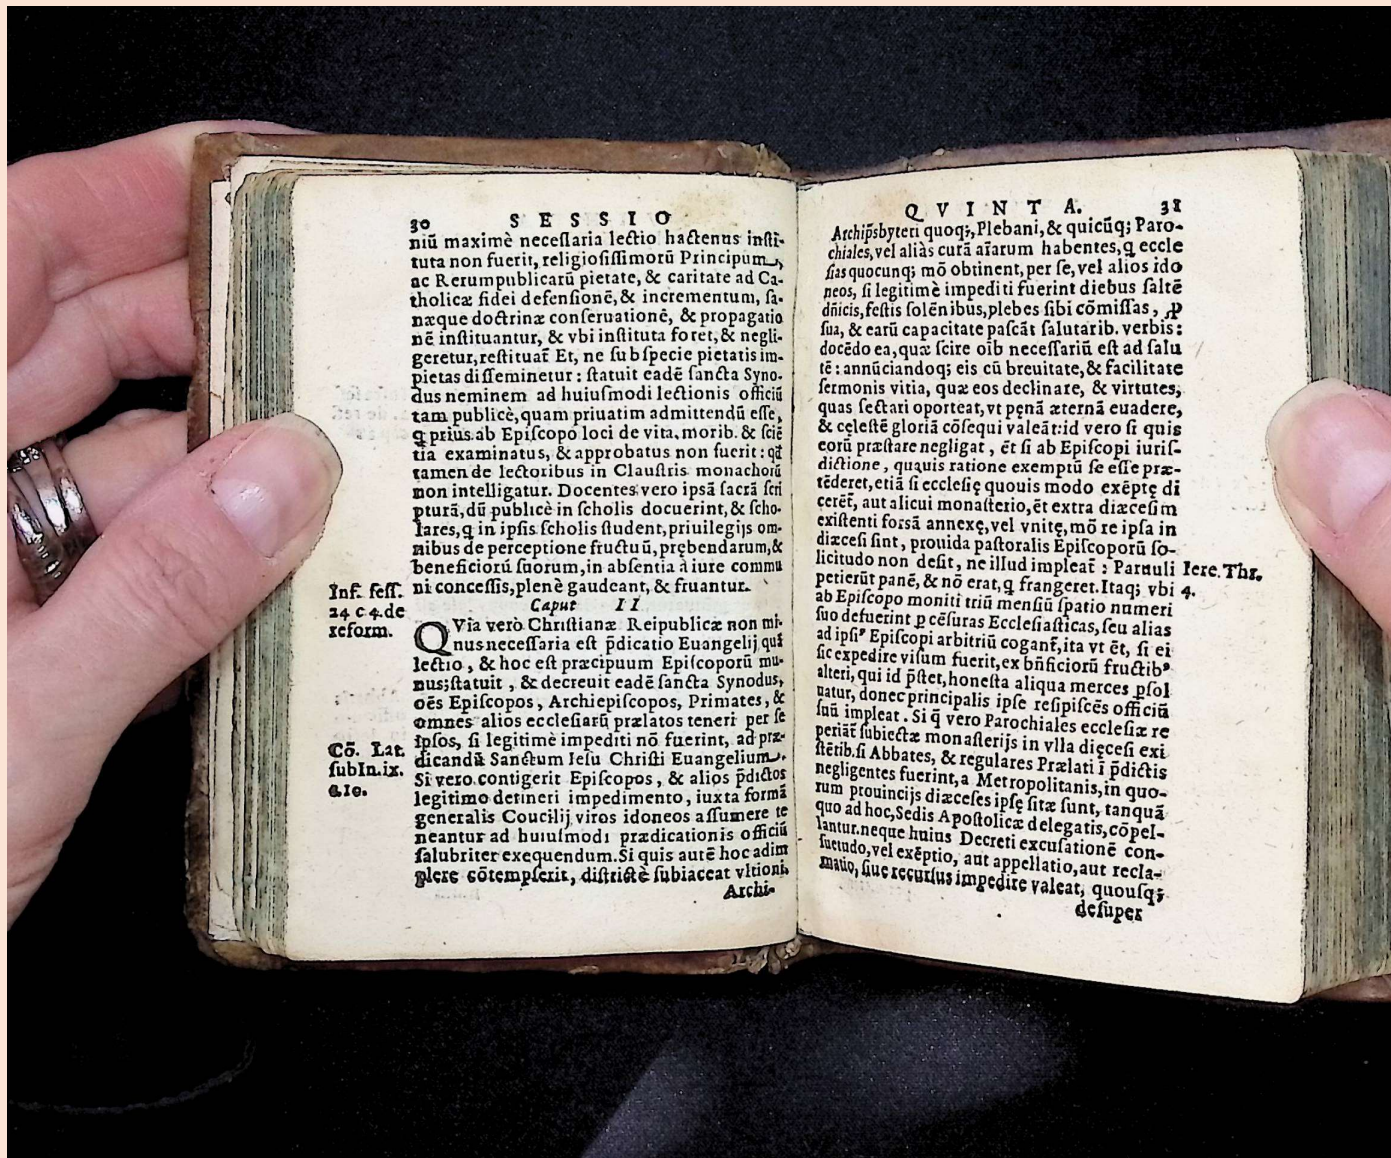 30 SESSIO
niũ maximè neceſſaria lectio hactenus inſti-
tuta non fuerit, religioſiſſimorũ Principum,
ac Rerumpublicarũ pietate, & caritate ad Ca-
tholicæ fidei defenſionẽ, & incrementum, ſa-
næque doctrinæ conſeruationẽ, & propagatio
nẽ inſtituantur, & vbi inſtituta foret, & negli-
geretur, reſtituãt Et, ne ſub ſpecie pietatis im-
pietas diſſeminetur : ſtatuit eadẽ ſancta Syno-
dus neminem ad huiuſmodi lectionis officiũ
tam publicè, quam priuatim admittendũ eſſe,
q̃ prius ab Epiſcopo loci de vita, morib. & ſciẽ
tia examinatus, & approbatus non fuerit : qđ
tamen de lectoribus in Clauſtris monachorũ
non intelligatur. Docentes vero ipsã ſacrã ſcri
pturã, dũ publicè in ſcholis docuerint, & ſcho-
lares, q̃ in ipſis ſcholis ſtudent, priuilegijs om-
nibus de perceptione fructuũ, prębendarum, &
beneficiorũ ſuorum, in abſentia à iure commu
ni conceſſis, plenè gaudeant, & fruantur.
Inf. ſeſſ.
24 c 4. de
reform.
Caput II
QVia verò Chriſtianæ Reipublicæ non mi-
nus neceſſaria eſt p̃dicatio Euangelij quã
lectio, & hoc eſt præcipuum Epiſcoporũ mu-
nus; ſtatuit, & decreuit eadẽ ſancta Synodus,
oẽs Epiſcopos, Archiepiſcopos, Primates, &
omnes alios eccleſiarũ prælatos teneri per ſe
ipſos, ſi legitimè impediti nõ fuerint, ad præ-
dicandũ Sanctum Ieſu Chriſti Euangelium.
Si vero contigerit Epiſcopos, & alios p̃dictos
legitimo detineri impedimento, iuxta formã
generalis Coucilij viros idoneos aſſumere te
neantur ad huiuſmodi prædicationis officiũ
ſalubriter exequendum. Si quis autẽ hoc adim
plere cõtempſerit, diſtrictè ſubiaceat vltioni.
Archi-
Cõ. Lat.
ſub In. ix.
&10.
QVINTA. 31
Archip̃sbyteri quoq;, Plebani, & quicũq; Paro-
chiales, vel aliàs curã aĩarum habentes, q̃ eccle
ſias quocunq; mõ obtinent, per ſe, vel alios ido
neos, ſi legitimè impediti fuerint diebus ſaltẽ
dñicis, feſtis ſolẽnibus, plebes ſibi cõmiſſas, ꝓ
ſua, & earũ capacitate paſcãt ſalutarib. verbis:
docẽdo ea, quæ ſcire oĩb neceſſariũ eſt ad ſalu
tẽ : annũciandoq; eis cũ breuitate, & facilitate
ſermonis vitia, quæ eos declinare, & virtutes,
quas ſectari oporteat, vt pęnã æternã euadere,
& cęleſtẽ gloriã cõſequi valeãt: id vero ſi quis
eorũ præſtare negligat, ẽt ſi ab Epiſcopi iuriſ-
dictione, quauis ratione exemptũ ſe eſſe præ-
tẽderet, etiã ſi eccleſię quouis modo exẽptę di
cerẽt, aut alicui monaſterio, ẽt extra diæceſim
exiſtenti forsã annexę, vel vnitę, mõ re ipſa in
diæceſi ſint, prouida paſtoralis Epiſcoporũ ſo-
licitudo non deſit, ne illud impleãt : Paruuli
petierũt panẽ, & nõ erat, q̃ frangeret. Itaq; vbi
ab Epiſcopo moniti triũ menſiũ ſpatio numeri
ſuo defuerint ꝑ cẽſuras Eccleſiaſticas, ſeu alias
ad ipſiꝰ Epiſcopi arbitriũ cogant̃, ita vt ẽt, ſi ei
ſic expedire viſum fuerit, ex bñficiorũ fructibꝰ
alteri, qui id p̃ſtet, honeſta aliqua merces ꝑſol
uatur, donec principalis ipſe reſipiſcẽs officiũ
ſuũ impleat. Si q̃ vero Parochiales eccleſiæ re
periãt ſubiectæ monaſterijs in vlla dięceſi exi
ſtẽtib. ſi Abbates, & regulares Prælati ĩ p̃dictis
negligentes fuerint, a Metropolitanis, in quo-
rum prouincijs diæceſes ipſę ſitæ ſunt, tanquã
quo ad hoc, Sedis Apoſtolicæ delegatis, cõpel-
lantur. neque huius Decreti excuſationẽ con-
ſuetudo, vel exẽptio, aut appellatio, aut recla-
matio, ſiue recurſus impedire valeat, quouſq;
deſuper
Iere. Thr.
4.